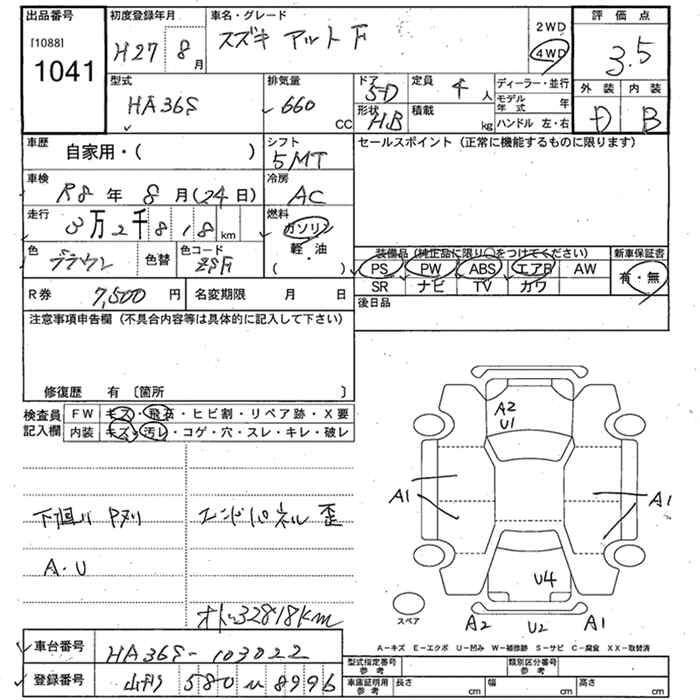 出品番号 初度登録年月 車名・グレード 2WD 評価点
[1088] H27 8月 スズキ アルト F 4WD 3.5
1041
型式 排気量 ドア 定員 ディーラー・並行 外装 内装
HA36S 660 CC 5D 4人 モデル年式 年 D B
形状 積載 ハンドル 左・右
HB kg
車歴 自家用・( ) シフト 5MT セールスポイント (正常に機能するものに限ります)
車検 R8年 8月(24日) 冷房 AC
走行 3万2千818km 燃料 ガソリン
軽・油
( )
色 ブラウン 色替 色コード 装備品 (純正品に限り〇をつけてください) 新車保証書
PS PW ABS エアB AW 有・無
SR ナビ TV カワ
R券 7,500円 名変期限 月 日 後日品
注意事項申告欄 (不具合内容等は具体的に記入して下さい)
修復歴 有 〔箇所 〕
検査員 FW キズ・飛石・ヒビ割・リペア跡・X要
記入欄 内装 キズ・汚レ・コゲ・穴・スレ・キレ・破レ
A2
U1
A1 A1
下回り Pヌリ エンドパネル歪
A・U
U4
スペア
A2 U2 A1
オド32818km
A−キズ E−エクボ U−凹み W−補修跡 S−サビ C−腐食 XX−取替済
車台番号 HA36S-103022 型式指定番号 参考 類別区分番号 参考
登録番号 580 8996 車庫証明用 参考 長さ cm 幅 cm 高さ cm